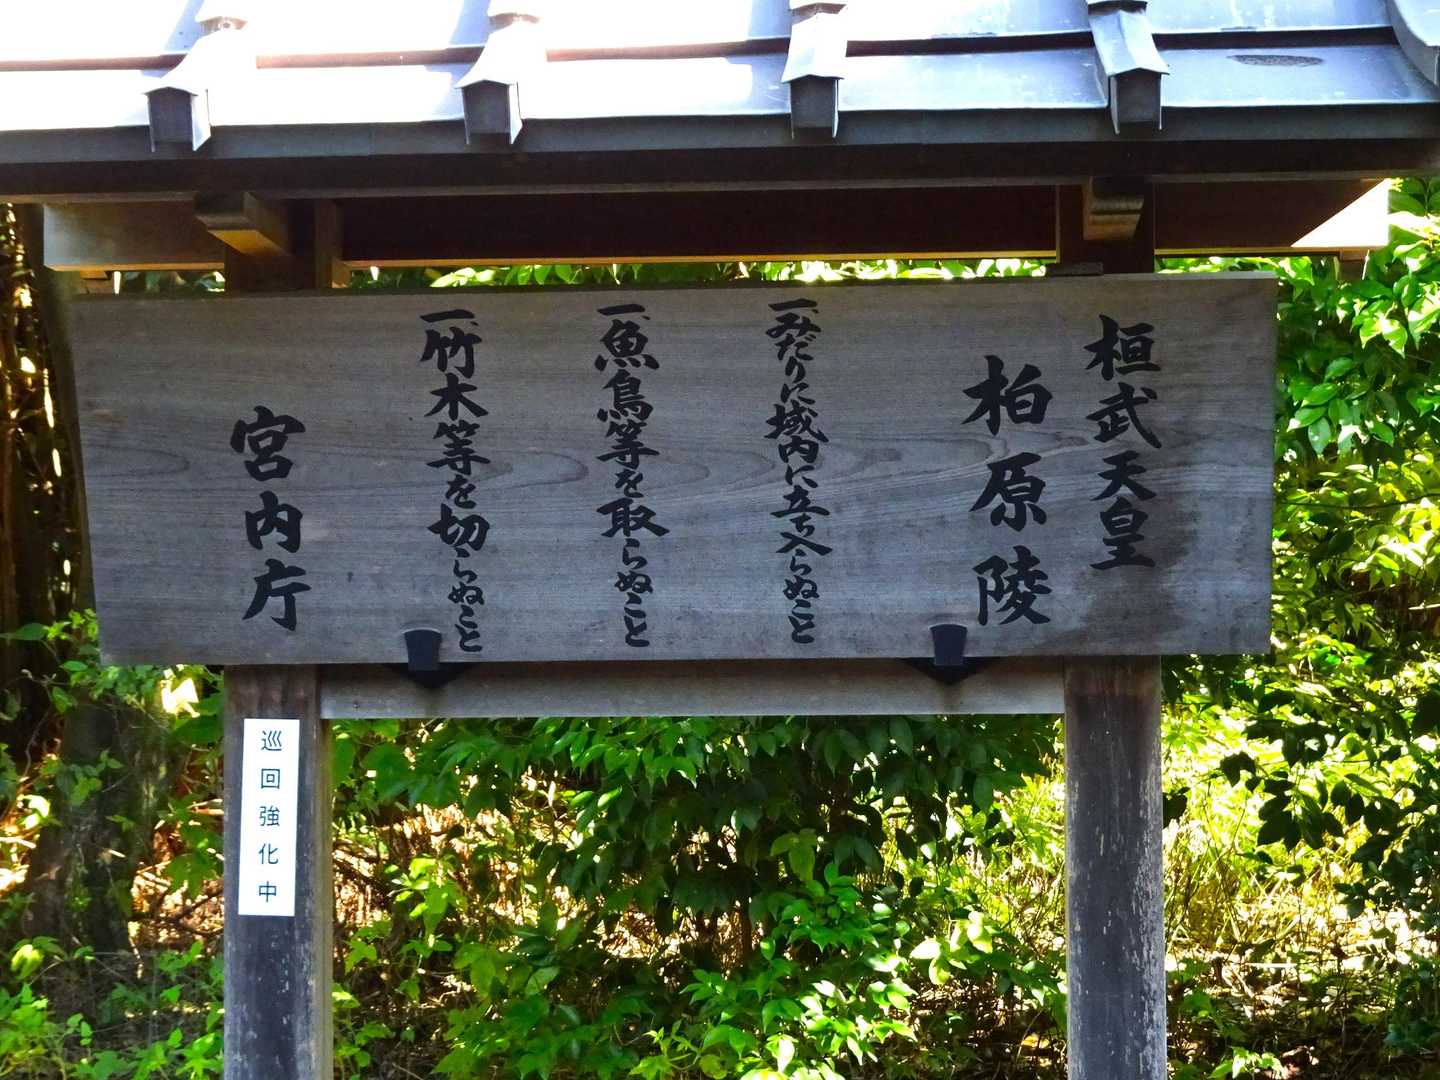 桓武天皇
柏原陵
一、みだりに域内に立ち入らぬこと
一、魚鳥等を取らぬこと
一、竹木等を切らぬこと
宮内庁
巡回強化中